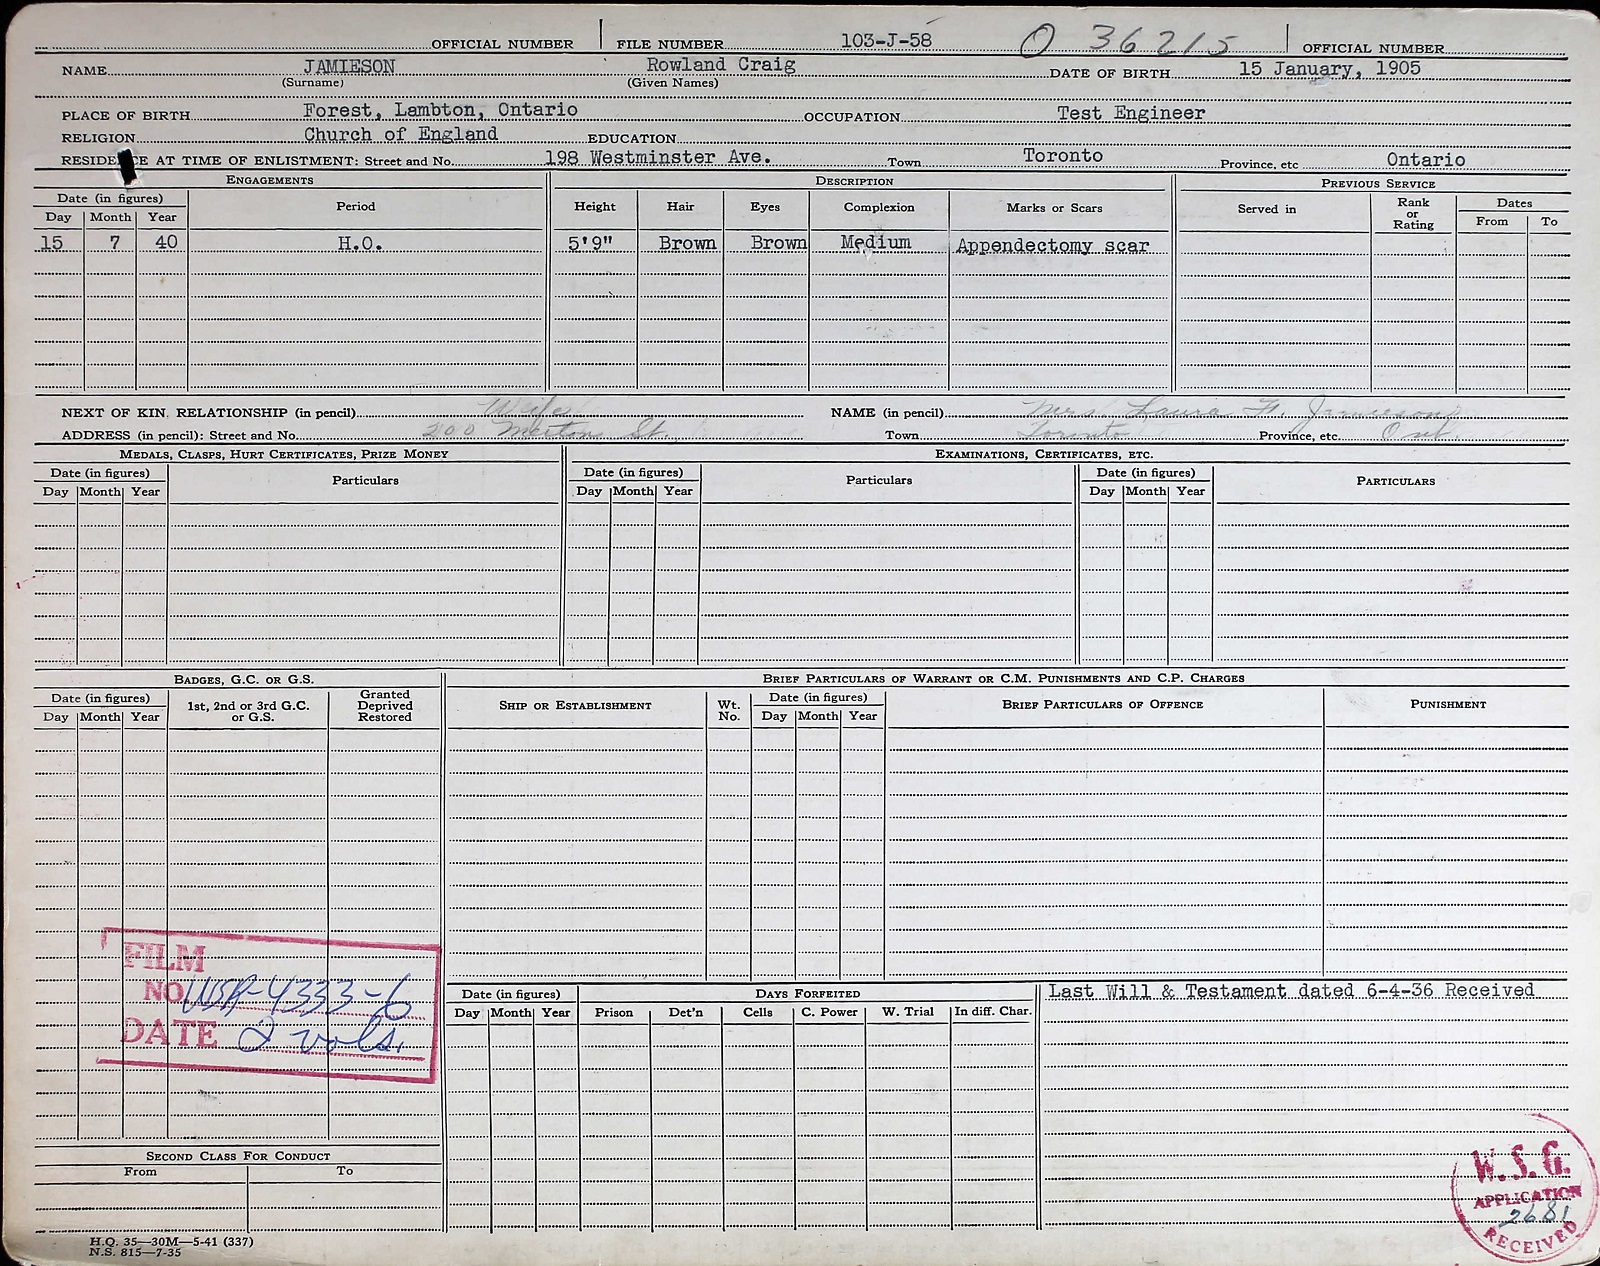 OFFICIAL NUMBER FILE NUMBER 103-J-58 O 36215 OFFICIAL NUMBER
NAME JAMIESON Rowland Craig DATE OF BIRTH 15 January, 1905
(Surname) (Given Names)
PLACE OF BIRTH Forest, Lambton, Ontario OCCUPATION Test Engineer
RELIGION Church of England EDUCATION
RESIDE E AT TIME OF ENLISTMENT: Street and No. 198 Westminster Ave. Town Toronto Province, etc Ontario
ENGAGEMENTS DESCRIPTION PREVIOUS SERVICE
Date (in figures) Period Height Hair Eyes Complexion Marks or Scars Served in Rank or Rating Dates
Day Month Year From To
15 7 40 H.O. 5'9" Brown Brown Medium Appendectomy scar
NEXT OF KIN RELATIONSHIP (in pencil) Wife NAME (in pencil) Mrs Laura F. Jamieson
ADDRESS (in pencil): Street and No. 200 Merton St. Town Toronto Province, etc. Ont.
MEDALS, CLASPS, HURT CERTIFICATES, PRIZE MONEY EXAMINATIONS, CERTIFICATES, ETC.
Date (in figures) Particulars Date (in figures) Particulars Date (in figures) PARTICULARS
Day Month Year Day Month Year Day Month Year
BADGES, G.C. OR G.S. BRIEF PARTICULARS OF WARRANT OR C.M. PUNISHMENTS AND C.P. CHARGES
Date (in figures) 1st, 2nd or 3rd G.C. or G.S. Granted Deprived Restored SHIP OR ESTABLISHMENT Wt. No. Date (in figures) BRIEF PARTICULARS OF OFFENCE PUNISHMENT
Day Month Year Day Month Year
FILM
NO WSR-4333-6
DATE 2 vols.
Date (in figures) DAYS FORFEITED Last Will & Testament dated 6-4-36 Received
Day Month Year Prison Det'n Cells C. Power W. Trial In diff. Char.
SECOND CLASS FOR CONDUCT
From To
W.S.G.
APPLICATION
2681
RECEIVED
H.Q. 35—30M—5-41 (337)
N.S. 815—7-35